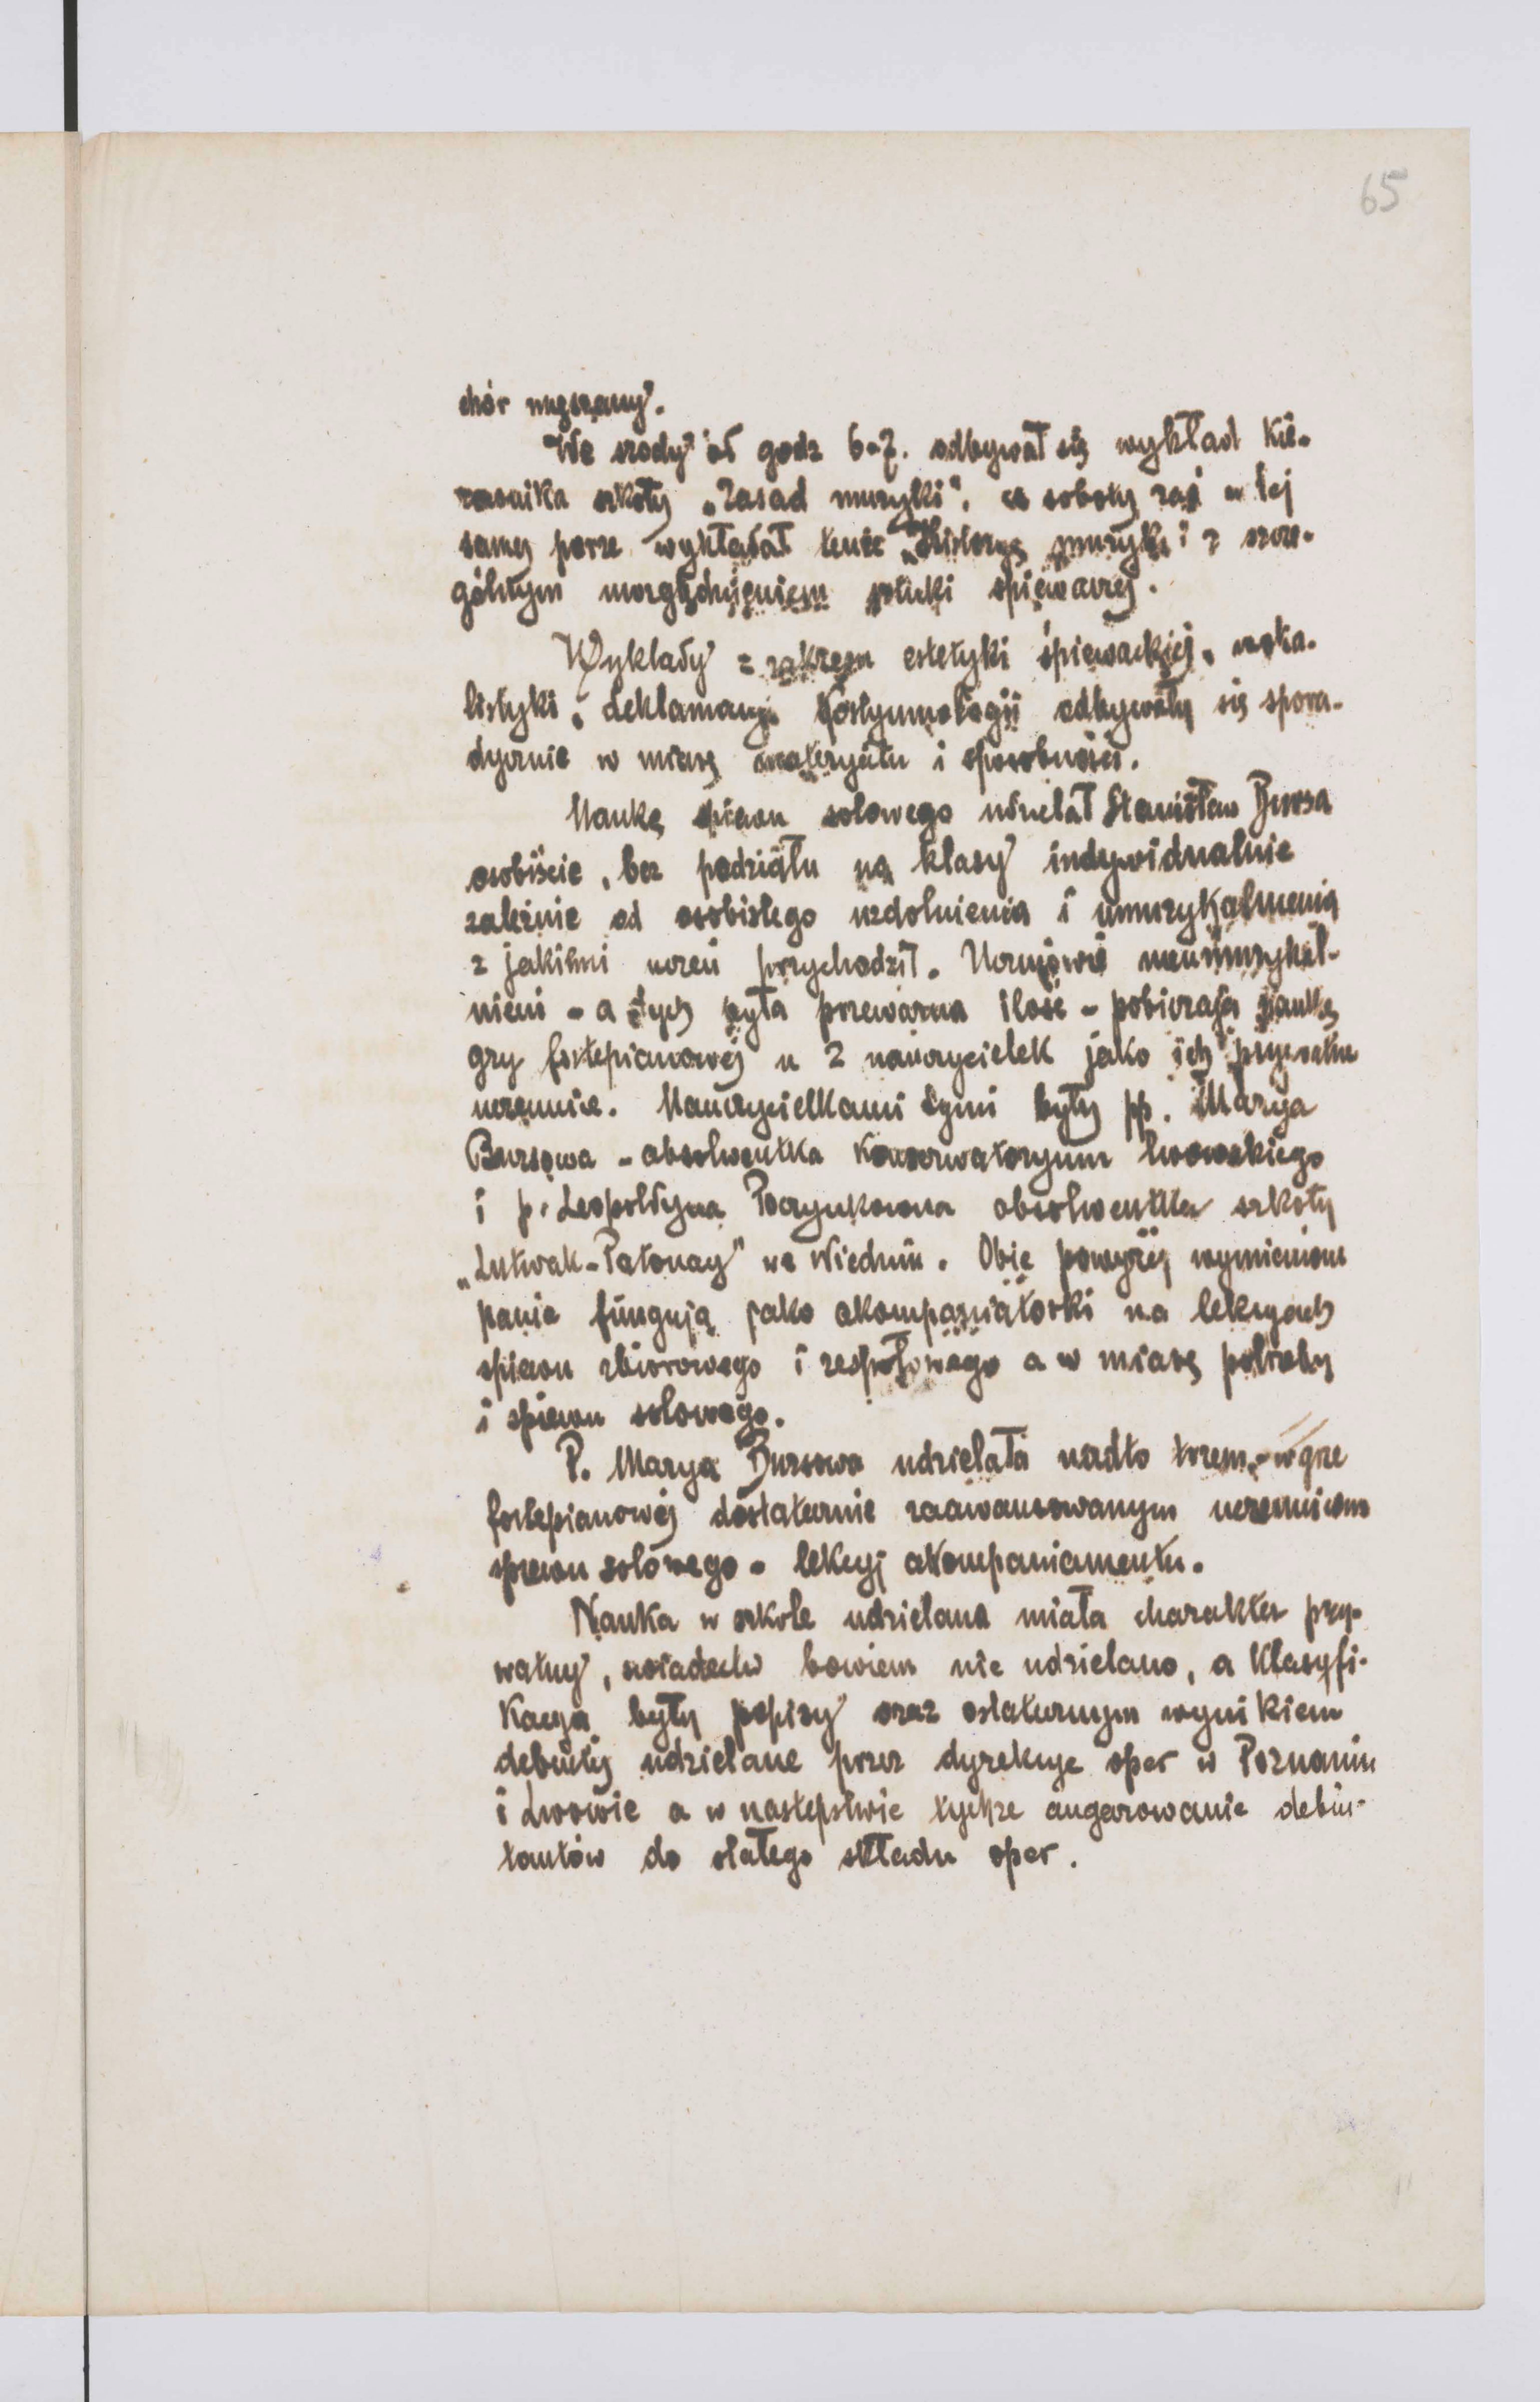 65
chór mięszany.
We srody od godz 6-7. odbywał się wykład kie-
rownika szkoły „Zasad muzyki", w soboty zaś w tej
samej porze wykładał tenże „Historyę muzyki" z szcze-
gólnym uwzględnieniem sztuki spiewaczej.
Wyklady z zakresu estetyki śpiewackiej, woka-
listyki, deklamacyi, kostyumologii odbywały się spora-
dycznie w miarę materyału i sposobności.
Naukę śpiewu solowego udzielał Stanisław Bursa
osobiście, bez podziału na klasy indywidualnie
zależnie od osobistego uzdolnienia i umuzykalnienia
z jakiemi uczeń przychodził. Uczniowie nieumuzykal-
nieni - a tych była przeważna ilość - pobierają naukę
gry fortepianowej u 2 nauczycielek jako ich prywatne
uczennice. Nauczycielkami temi były pp. Marya
Bursowa - absolwentka Konserwatoryum lwowskiego
i p. Leopoldyna Poczynkowna absolwentka szkoły
„Lutwak-Patonay" we Wiedniu. Obie powyżej wymienione
panie fungują jako akompaniatorki na lekcyach
spiewu zbiorowego i zespołowego a w miarę potrzeby
i spiewu solowego.
P. Marya Bursowa udzielała nadto w grze
fortepianowej dostatecznie zaawansowanym uczennicom
spiewu solowego - lekcyj akompaniamentu.
Nauka w szkole udzielana miała charakter pry-
watny, swiadectw bowiem nie udzielano, a klasyfi-
kacyą były popisy oraz ostatecznym wynikiem
debiuty udzielane przez dyrekcye oper w Poznaniu
i Lwowie a w nastepstwie tychże angarowanie debiu-
tantów do stałego składu oper.